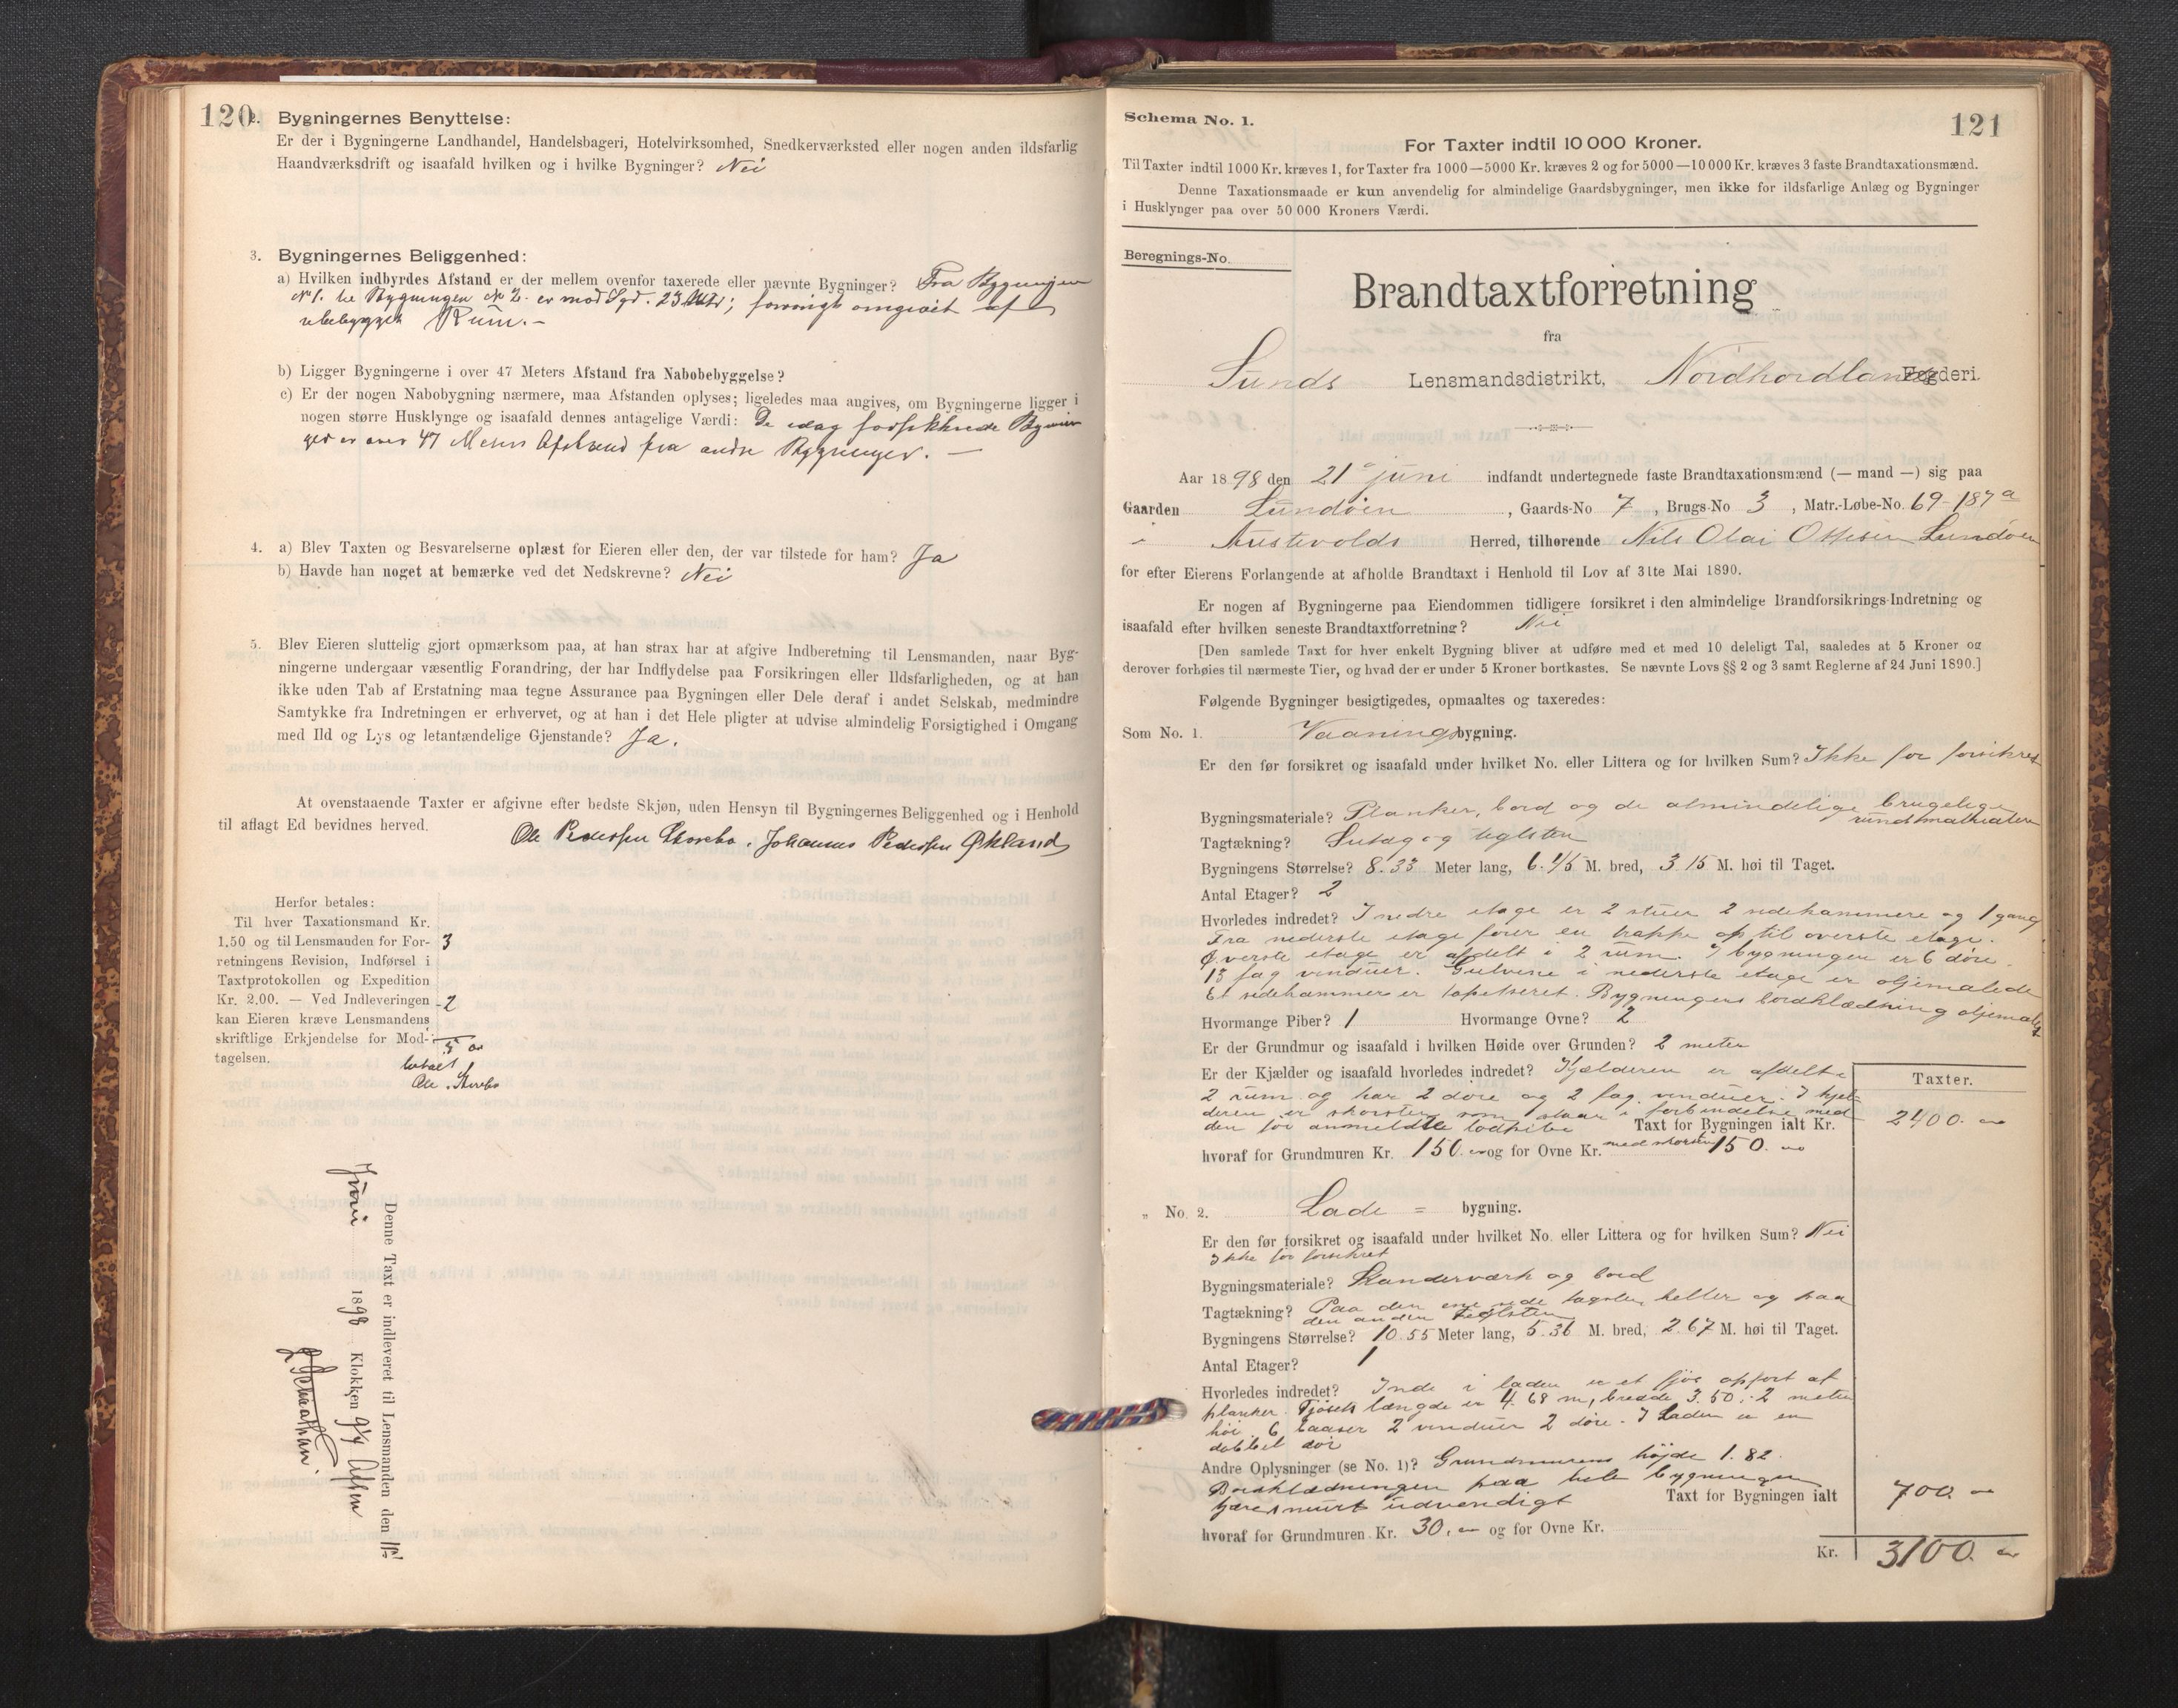 120
2. Bygningernes Benyttelse:
Er der i Bygningerne Landhandel, Handelsbageri, Hotelvirksomhed, Snedkerværksted eller nogen anden ildsfarlig
Haandværksdrift og isaafald hvilken og i hvilke Bygninger? Nei
3. Bygningernes Beliggenhed:
a) Hvilken indbyrdes Afstand er der mellem ovenfor taxerede eller nævnte Bygninger? Fra Bygningen
No 1. til Bygningen No 2. er mod Syd. 23 Mtr; forøvrigt omgivet af
ubebygget Rum. —
b) Ligger Bygningerne i over 47 Meters Afstand fra Nabobebyggelse?
c) Er der nogen Nabobygning nærmere, maa Afstanden oplyses; ligeledes maa angives, om Bygningerne ligger i
nogen større Husklynge og isaafald dennes antagelige Værdi: De idag forsikkrede Bygnin
ger er over 47 Meters Afstand fra andre Bygninger. —
4. a) Blev Taxten og Besvarelserne oplæst for Eieren eller den, der var tilstede for ham? Ja
b) Havde han noget at bemærke ved det Nedskrevne? Nei
5. Blev Eieren sluttelig gjort opmærksom paa, at han strax har at afgive Indberetning til Lensmanden, naar Byg-
ningerne undergaar væsentlig Forandring, der har Indflydelse paa Forsikringen eller Ildsfarligheden, og at han
ikke uden Tab af Erstatning maa tegne Assurance paa Bygningen eller Dele deraf i andet Selskab, medmindre
Samtykke fra Indretningen er erhvervet, og at han i det Hele pligter at udvise almindelig Forsigtighed i Omgang
med Ild og Lys og letantændelige Gjenstande? Ja.
At ovenstaaende Taxter er afgivne efter bedste Skjøn, uden Hensyn til Bygningernes Beliggenhed og i Henhold
til aflagt Ed bevidnes herved.
Ole Pedersen Storebø. Johannes Pedersen Økland
Herfor betales:
Til hver Taxationsmand Kr.
1.50 og til Lensmanden for For- 3
retningens Revision, Indførsel i
Taxtprotokollen og Expedition
Kr. 2.00. — Ved Indleveringen - 2
kan Eieren kræve Lensmandens
skriftlige Erkjendelse for Mod- 5
tagelsen.
betalt
Ole Storebø
Denne Taxt er indleveret til Lensmanden den
Juni 1898 Klokken 9 1/4 Aften
121
Schema No. 1.
For Taxter indtil 10 000 Kroner.
Til Taxter indtil 1000 Kr. kræves 1, for Taxter fra 1000—5000 Kr. kræves 2 og for 5000—10 000 Kr. kræves 3 faste Brandtaxationsmænd.
Denne Taxationsmaade er kun anvendelig for almindelige Gaardsbygninger, men ikke for ildsfarlige Anlæg og Bygninger
i Husklynger paa over 50 000 Kroners Værdi.
Beregnings-No.
Brandtaxtforretning
fra
Sunds Lensmandsdistrikt, Nordhordlands Fogderi.
Aar 1898 den 21 juni indfandt undertegnede faste Brandtaxationsmænd (— mand —) sig paa
Gaarden Lundøen, Gaards-No 7, Brugs-No 3, Matr.-Løbe-No. 69-187a
i Austevolds Herred, tilhørende Nils Olai Ottesen Lundøen
for efter Eierens Forlangende at afholde Brandtaxt i Henhold til Lov af 31te Mai 1890.
Er nogen af Bygningerne paa Eiendommen tidligere forsikret i den almindelige Brandforsikrings-Indretning og
isaafald efter hvilken seneste Brandtaxtforretning? Nei
[Den samlede Taxt for hver enkelt Bygning bliver at udføre med et med 10 deleligt Tal, saaledes at 5 Kroner og
derover forhøies til nærmeste Tier, og hvad der er under 5 Kroner bortkastes. Se nævnte Lovs §§ 2 og 3 samt Reglerne af 24 Juni 1890.]
Følgende Bygninger besigtigedes, opmaaltes og taxeredes:
Som No. 1. Vaaningsbygning.
Er den før forsikret og isaafald under hvilket No. eller Littera og for hvilken Sum? Ikke før forsikret
Bygningsmateriale? Planker, bord og de almindelige brugelige
Tagtækning? Sutag og teglsten
Bygningens Størrelse? 8.33 Meter lang, 6.45 M. bred, 3.15 M. høi til Taget.
Antal Etager? 2
Hvorledes indredet? I nedre etage er 2 stuer 2 sidekammere og 1 gang
Fra nederste etage fører en trappe op til øverste etage.
Øverste etage er afdelt i 2 rum. I bygningen er 6 døre.
13 fag vinduer. Gulvene i nederste etage er oljemalede
Et sidekammer er tapetseret. Bygningens bordklædning oljemalet
Hvormange Piber? 1 Hvormange Ovne? 2
Er der Grundmur og isaafald i hvilken Høide over Grunden? 2 meter
Er der Kjælder og isaafald hvorledes indredet? Kjælderen er afdelt i
2 rum og har 2 døre og 2 fag vinduer. I kjel-
deren er skorsten som staar i forbindelse med
den før anmeldte Taxt for Bygningen ialt Kr.
Taxter.
2400.
hvoraf for Grundmuren Kr. 150. og for Ovne Kr. med skorsten 150.
„ No. 2. Lade = bygning.
Er den før forsikret og isaafald under hvilket No. eller Littera og for hvilken Sum? Nei
Ikke før forsikret
Bygningsmateriale? Standerværk og bord
Tagtækning? Paa den ene side heller og paa
den anden teglsten
Bygningens Størrelse? 10.55 Meter lang, 5.36 M. bred, 2.67 M. høi til Taget.
Antal Etager? 1
Hvorledes indredet? Inde i laden er et fjøs opført af
planker. Fjøsets længde er 4.68 m, bredde 3.50. 2 meter
høi. 6 baaser 2 vinduer 2 døre. I Laden er en
dobbel dør
Andre Oplysninger (se No. 1)? Grundmurens højde 1.82.
Bordklædningen paa hele bygningen
tjæresmurt udvendigt Taxt for Bygningen ialt 700.
hvoraf for Grundmuren Kr. 30. og for Ovne Kr.
Kr. 3100.